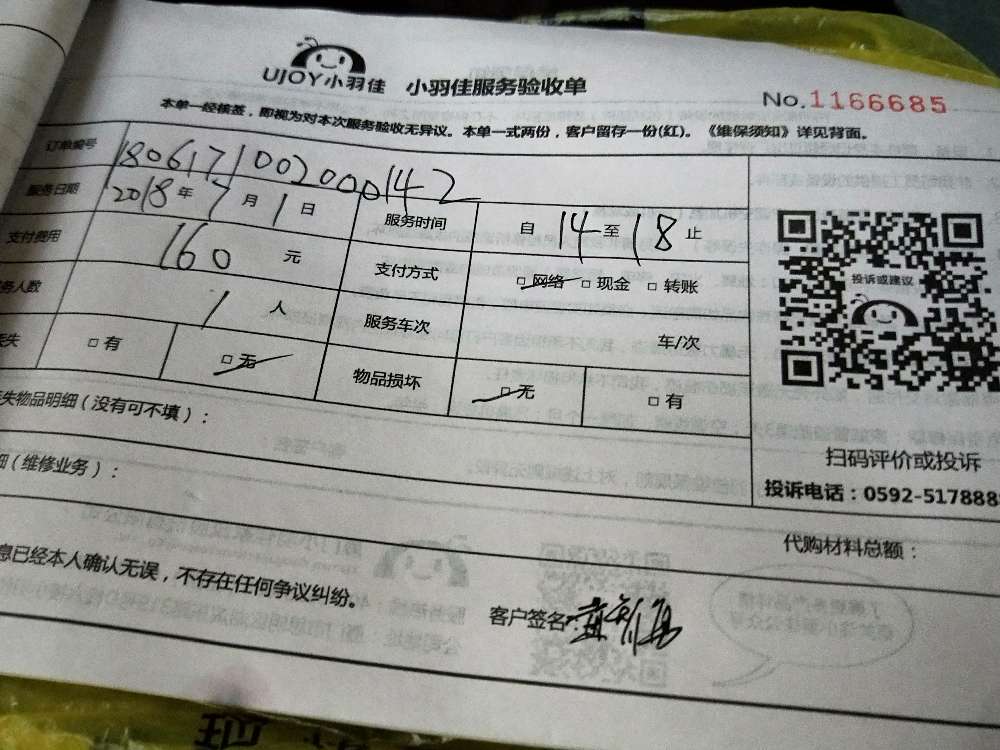 UJOY小羽佳 小羽佳服务验收单
No.1166685
本单一经核签，即视为对本次服务验收无异议。本单一式两份，客户留存一份(红)。《维保须知》详见背面。
订单编号 1806171002000142
服务日期 2018年7月1日 服务时间 自14至18止
支付费用 160元 支付方式 □网络 □现金 □转账
务人数 1人 服务车次 车/次
失 □有 □无 物品损坏 □无 □有
失物品明细（没有可不填）：
细（维修业务）：
投诉或建议
扫码评价或投诉
投诉电话：0592-5178885
代购材料总额：
息已经本人确认无误，不存在任何争议纠纷。
客户签名：